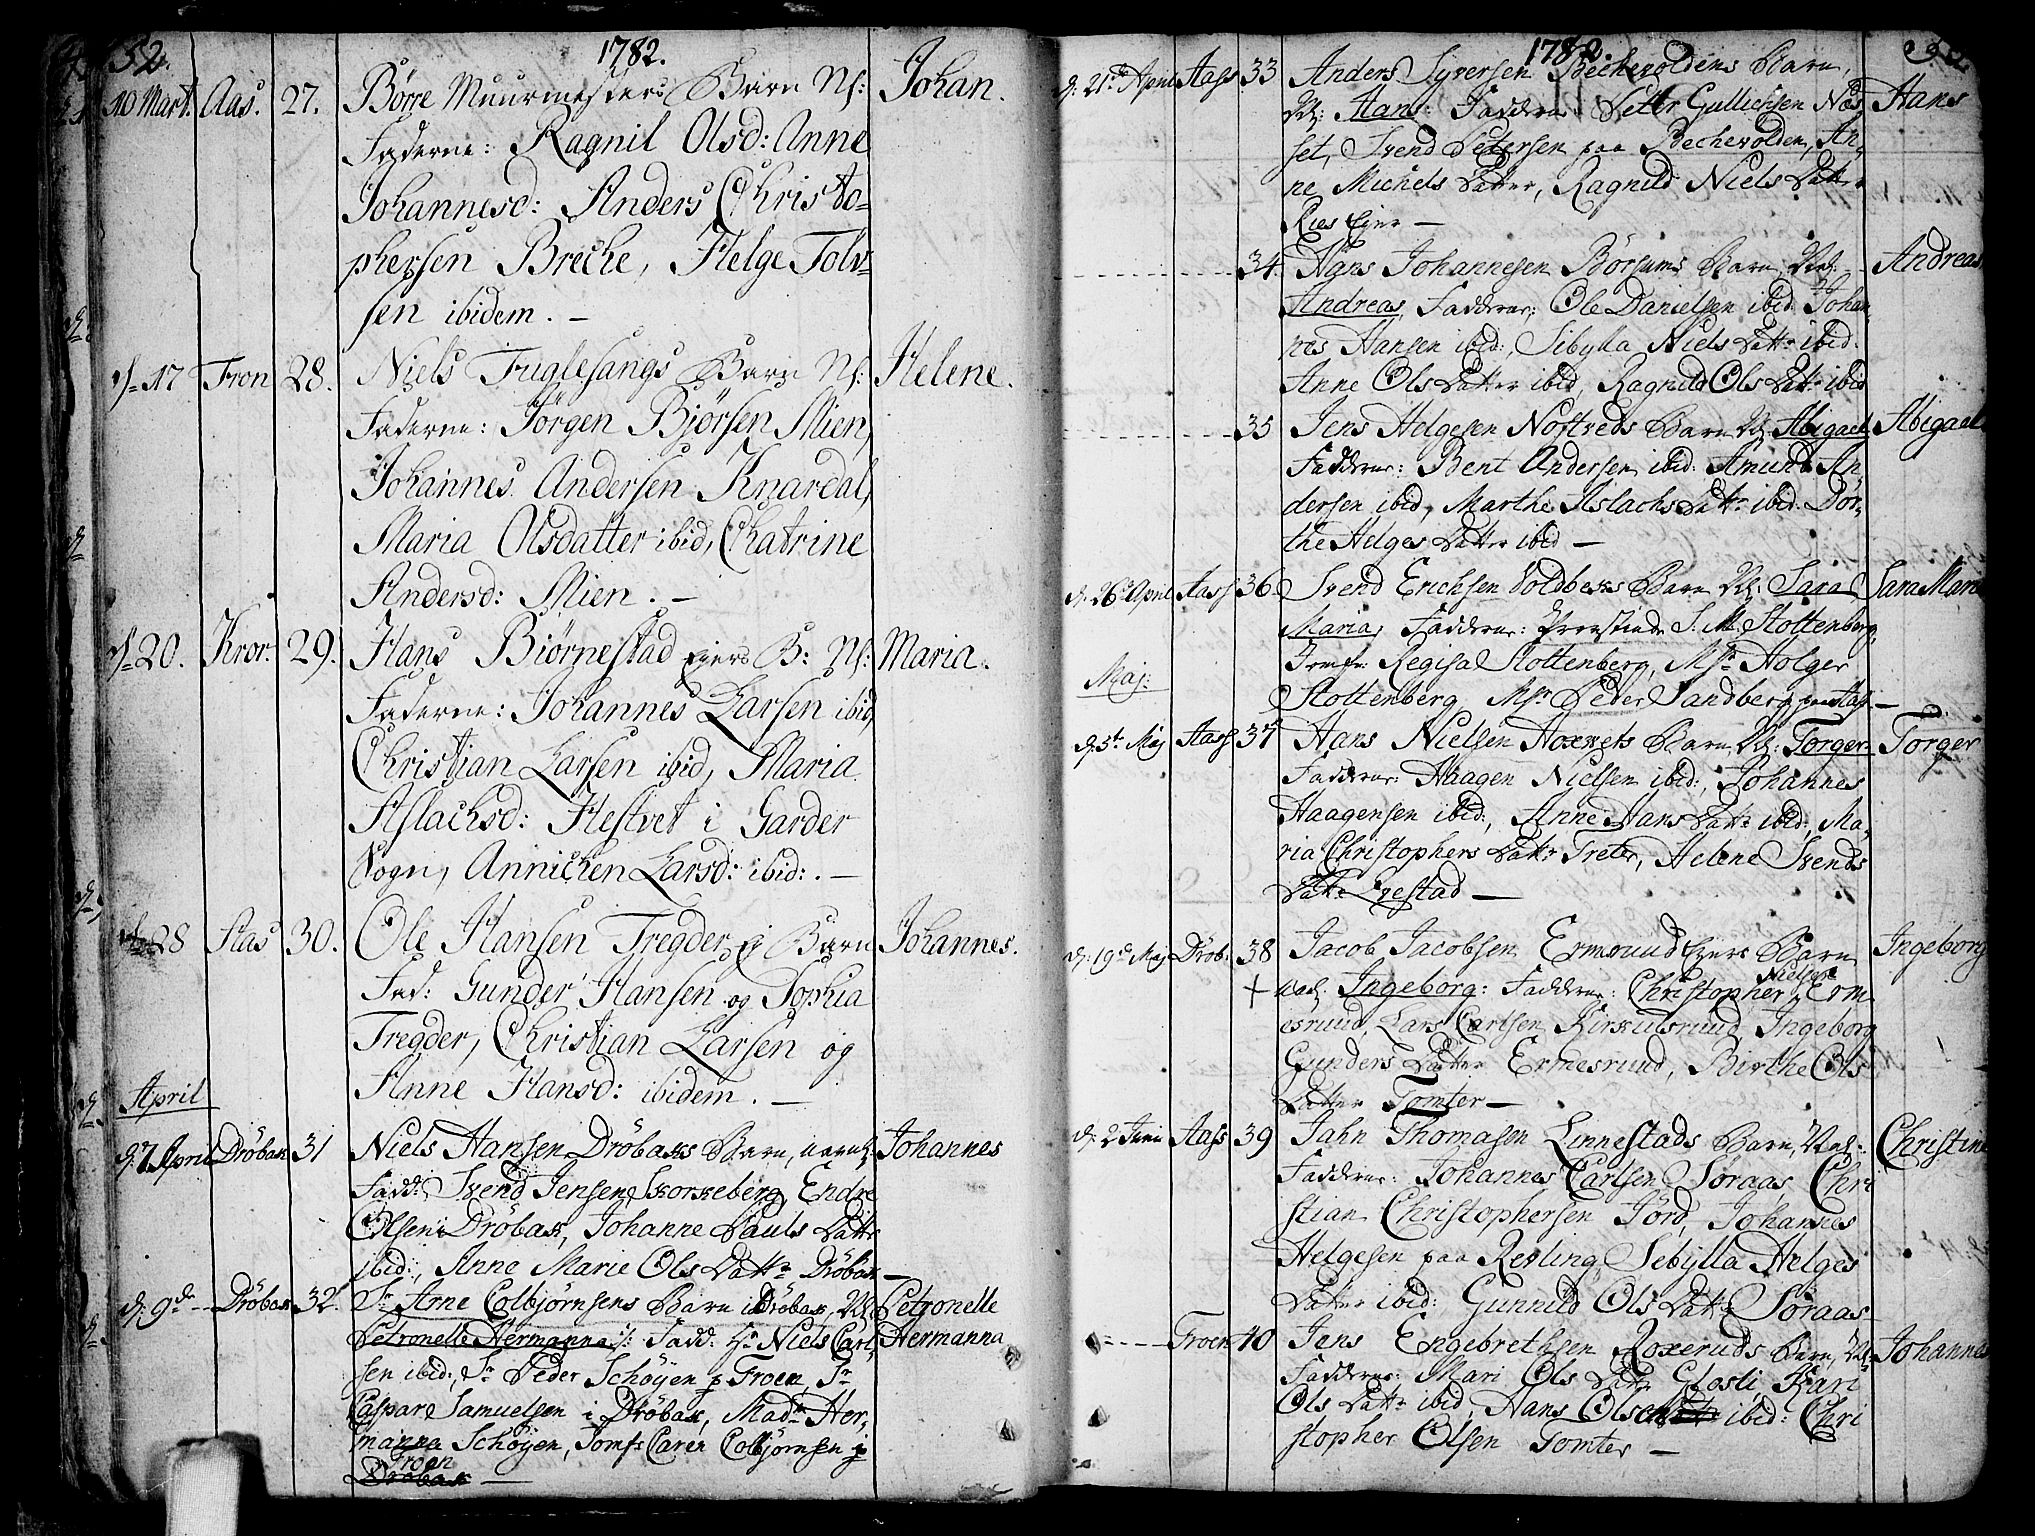 52.
1782.
10 Mart. Aas. 27. Börre Muurmesters Barn N: Johan.
Faderne: Ragnil Olsd: Anne
Johannesd: Anders Christo-
phersen Breche, Helge Tolv-
sen ibidem. —
17 Fron 28. Niels Fuglesangs Barn N: Helene.
Faderne: Jörgen Bjørsen Mien,
Johannes Andersen Knardal,
Maria Olsdatter ibid, Chatrine
Andersd: Mien. —
20. Kror. 29. Hans Biørnestad Eiers B: N: Maria.
Faderne: Johannes Larsen ibid,
Christian Larsen ibid, Maria
Aslachsd: Hestvet i Garder
Sogn, Annichen Larsd: ibid: . —
28 Aas 30. Ole Hansen Tregder Barn Johannes.
Fad: Gunder Hansen og Sophia
Tregder, Christian Larsen og
Anne Hansd: ibidem. —
April
d: 7 April Dröbak 31 Niels Hansen Dröbaks Barn, Johannes
Fadd: Svend Jensen Skorkeberg, Endre
Olsen Dröbak, Johanne Pauls Datter
ibid:, Anne Marie Ols Dattr Dröbak —
d: 9d Dröbak 32. Sr Arne Colbjørnsens Barn i Dröbak, N: Petronelle
Petronelle Hermanna: Fadd: Hr Niels Carl- Hermanna
sen ibid:, Sr Peder Schöyen p Froen, Sr
Caspar Samuelsen i Dröbak, Madm Her-
manna Schöyen, Jomfr Caren Colbjørnsen p
Froen
Dröbak —
1782.
d: 21d April Aass 33 Anders Syversen Bechevoldens Barn,
N: Hans: Faddrne Petter Gullichsen Næs- Hans
set, Svend Pedersen paa Bechevolden, An-
ne Michels Datter, Ragnild Niels Datter
Ries Eier —
34. Hans Johannesen Börsums Barn, N: Andreas
Andreas, Faddrne: Ole Danielsen ibid: Johan-
nes Hansen ibid:, Sibylla Niels Dattr ibid:
Anne Ols Datter ibid, Ragnild Ols Dattr ibid
35 Jens Helgesen Nostveds Barn N: Abigael Abigael
Faddrne: Bent Andersen ibid: Amund An-
dersen ibid, Marthe Aslachs Dattr ibid. Dor-
the Helges Datter ibid —
d: 26 April Aass 36. Svend Erichsen Voldbeks Barn N: Sara Sara Maria
Maria, Faddrne: S. M. Stoltenberg,
Jomfr: Regisa Stoltenberg, Msr Holger
Stoltenberg Msr Peder Sandberg paa Aass —
Maj:
d: 5t Maj Aass 37 Hans Nielsen Hoxvets Barn N: Torger Torger
Faddrne: Haagen Nielsen ibid:, Johannes
Haagensen ibid:, Anne Hans Dattr ibid, Ma-
ria Christophers Dattr Treter, Helene Svends
Dattr Egestad —
d: 19d Maj Dröb: 38 Jacob Jacobsen Ermsrud Eyers Barn Ingeborg
+ N: Ingeborg: Faddrne: Christopher Nielsen Erm-
esruud, Lars Carlsen Kirkulsruud, Ingeborg
Gunders Datter Ermesruud, Birthe Ols
Datter Tomter —
d: 2 Juni Aass 39 Jahn Thomasen Linnestads Barn, N: Christine
Faddrne: Johannes Carlsen Soraas, Chri-
stian Christophersen Jord, Johannes
Helgesen paa Rerling, Sebylla Helges
Datter ibid: Gunnild Ols Dattr Soraas
Froen 40 Jens Engebrethsen Roxeruds Barn, N: Johannes
Faddrne: Mari Ols Dattr Glosli Kari
Ols Dattr ibid, Hans Olsen ibid: Chri-
stopher Olsen Tomter —